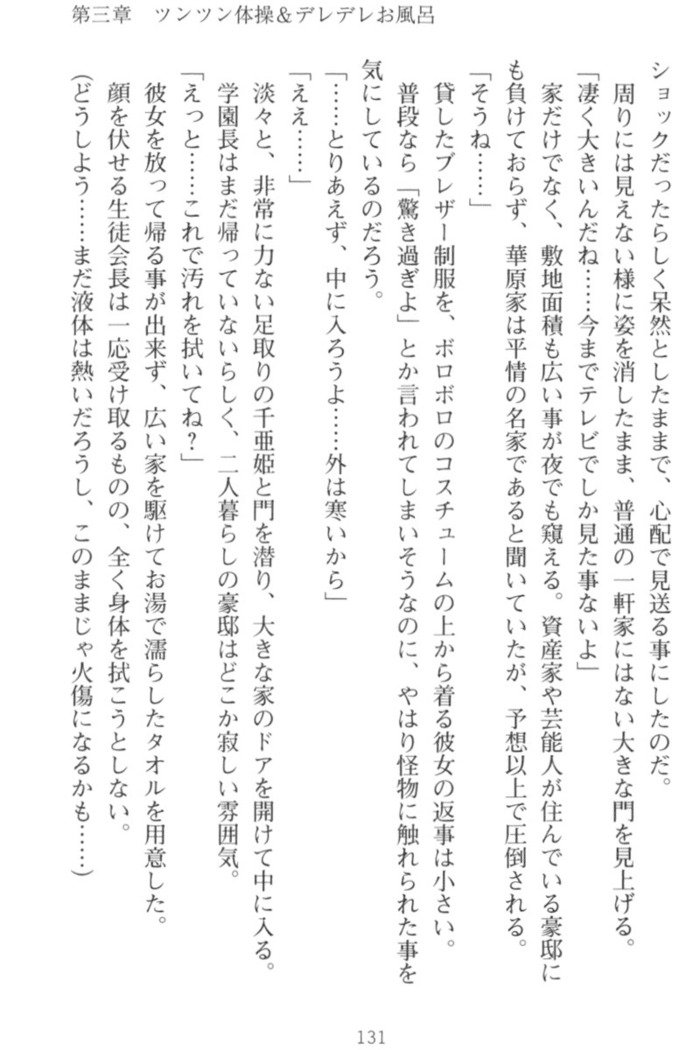 第三章　ツンツン体操＆デレデレお風呂
ショックだったらしく呆然としたままで、心配で見送る事にしたのだ。
周りには見えない様に姿を消したまま、普通の一軒家にはない大きな門を見上げる。
「凄く大きいんだね……今までテレビでしか見た事ないよ」
家だけでなく、敷地面積も広い事が夜でも窺える。資産家や芸能人が住んでいる豪邸に
も負けておらず、華原家は平情の名家であると聞いていたが、予想以上で圧倒される。
「そうね……」
貸したブレザー制服を、ボロボロのコスチュームの上から着る彼女の返事は小さい。
普段なら「驚き過ぎよ」とか言われてしまいそうなのに、やはり怪物に触れられた事を
気にしているのだろう。
「……とりあえず、中に入ろうよ……外は寒いから」
「ええ……」
淡々と、非常に力ない足取りの千亜姫と門を潜り、大きな家のドアを開けて中に入る。
学園長はまだ帰っていないらしく、二人暮らしの豪邸はどこか寂しい雰囲気。
「えっと……これで汚れを拭いてね？」
彼女を放って帰る事が出来ず、広い家を駆けてお湯で濡らしたタオルを用意した。
顔を伏せる生徒会長は一応受け取るものの、全く身体を拭こうとしない。
（どうしよう……まだ液体は熱いだろうし、このままじゃ火傷になるかも……）
131